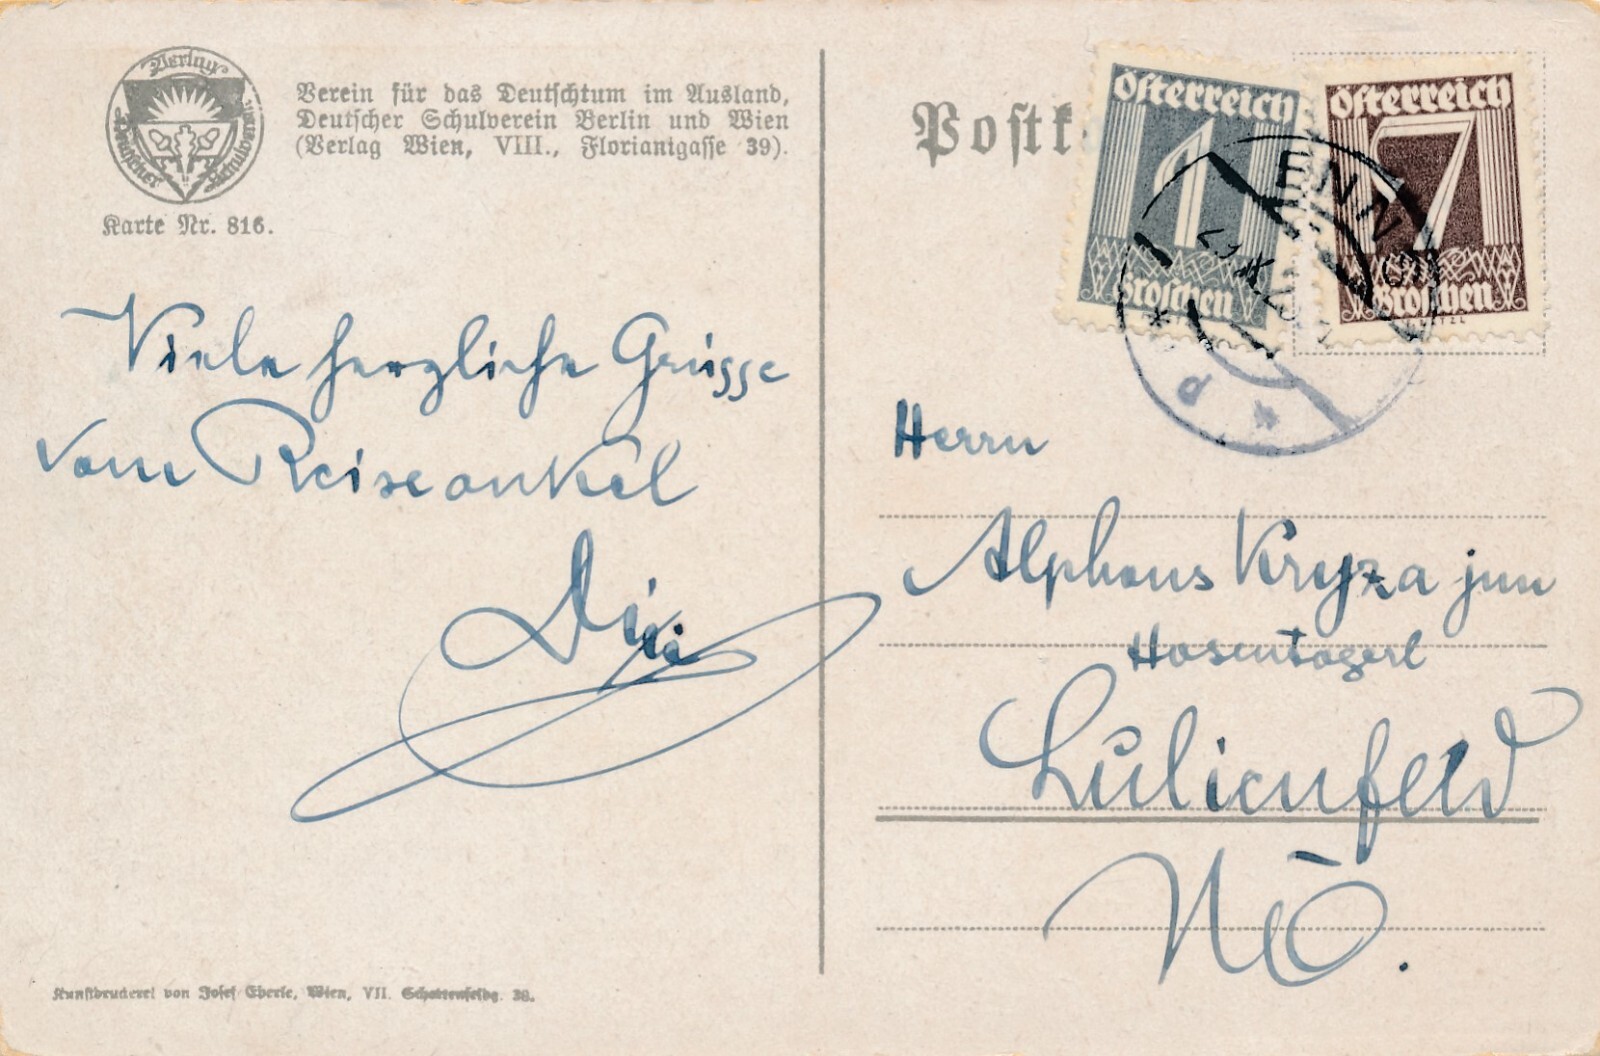 Verlag
Deutscher Schulverein
Verein für das Deutschtum im Ausland,
Deutscher Schulverein Berlin und Wien
(Verlag Wien, VIII., Florianigasse 39).
Karte Nr. 816.
Viele herzliche Grüsse
vom Reiseonkel
Postk
Österreich
1
Groschen
Österreich
7
Groschen
ENN
Herrn
Alphons Kryza jun
Lilienfeld
NÖ.
Kunstdruckerei von Josef Eberle, Wien, VII. Schottenfeldg. 38.